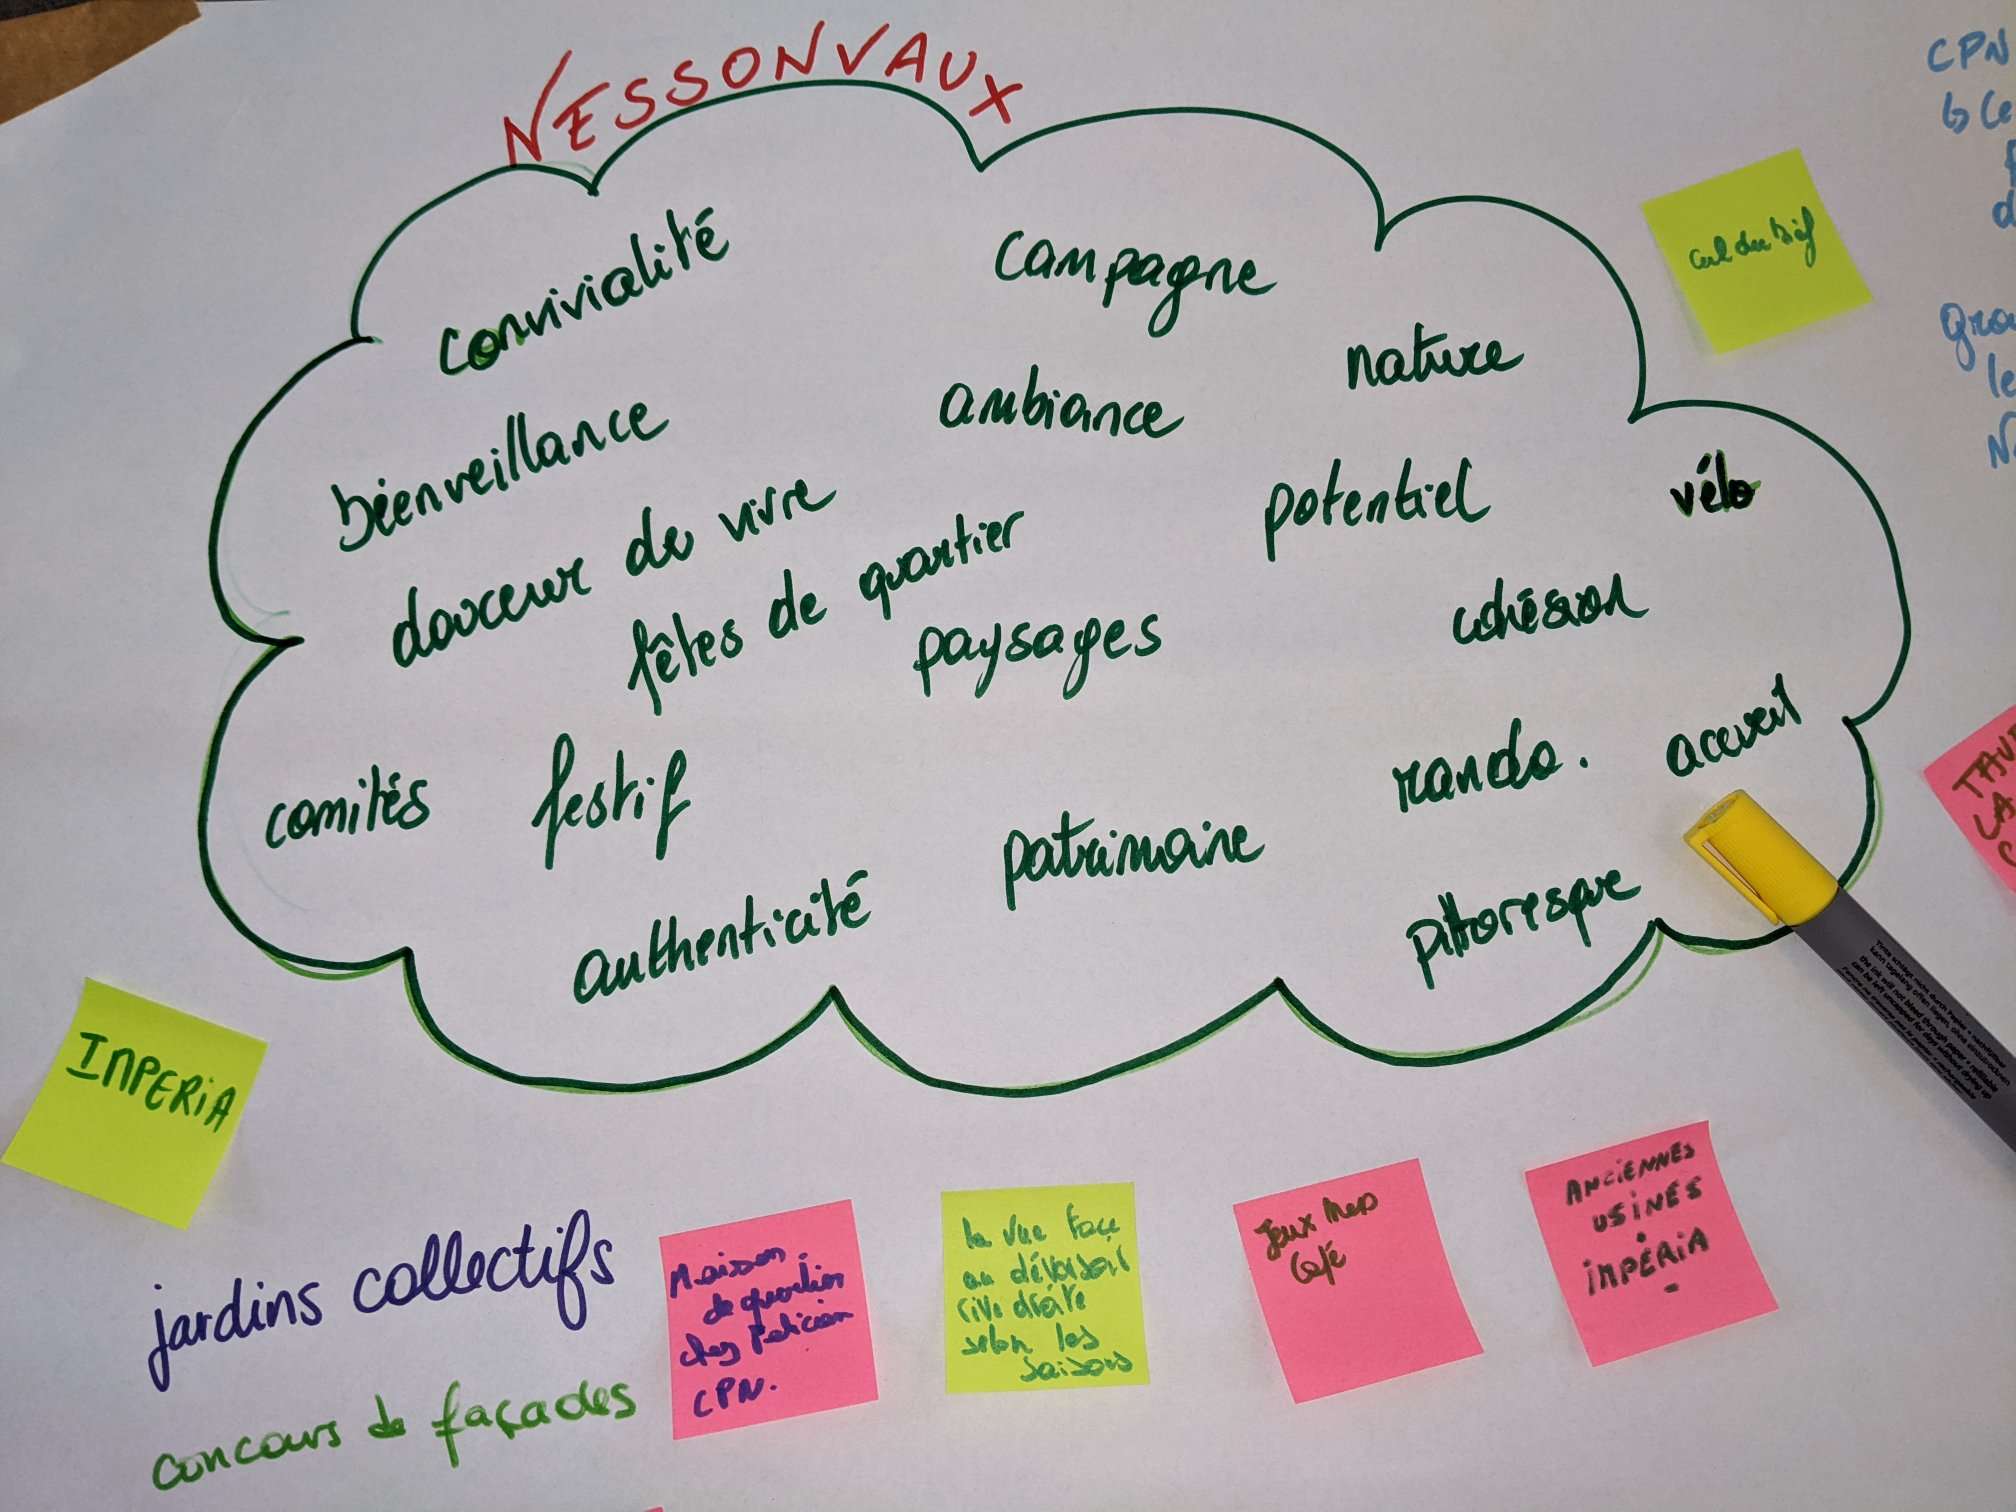 NESSONVAUX
convivialité
campagne
nature
bienveillance
ambiance
douceur de vivre
potentiel
vélo
fêtes de quartier
paysages
cohésion
comités
festif
rando.
accueil
patrimoine
authenticité
pittoresque
cul du bief
CPN
IMPERIA
jardins collectifs
concours de façades
Maison
de quartier
chez
CPN.
la vue face
au déversoir
rive droite
selon les
saisons
Jeux
Café
ANCIENNES
USINES
IMPÉRIA
-
LA